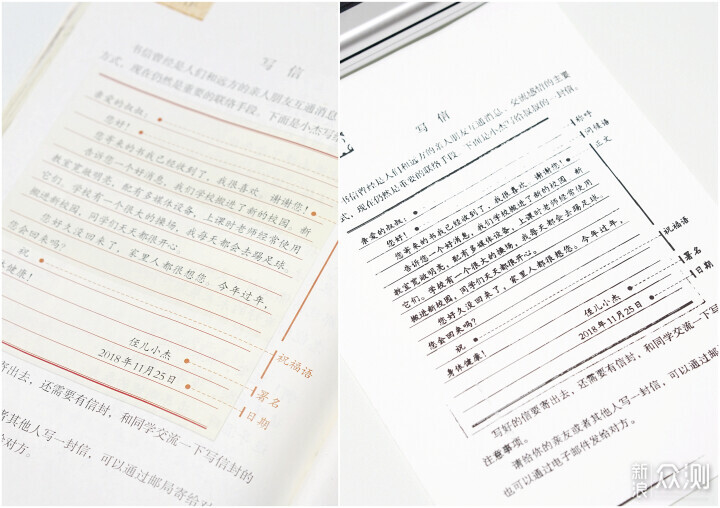 写信
书信曾经是人们和远方的亲人朋友互通消息
方式，现在仍然是重要的联络手段。下面是小杰写给
亲爱的叔叔：
您好！
您寄来的书我已经收到了，我很喜欢，谢谢您！
告诉您一个好消息，我们学校搬进了新的校园，新
教室宽敞明亮，配有多媒体设备，上课时老师经常使用
它们。学校有一个很大的操场，我每天都会去踢足球。
搬进新校园，同学们天天都很开心
您好久没回来了，家里人都很想您。今年过年，
您会回来吗？
祝
体健康！
侄儿小杰
2018年11月25日
祝福语
署名
日期
寄出去，还需要有信封，和同学交流一下写信封的
者其他人写一封信，可以通过邮局寄给对
给对方。
写信
书信曾经是人们和远方的亲人朋友互通消息、交流感情的主要
式，现在仍然是重要的联络手段。下面是小杰写给叔叔的一封信。
称呼
问候语
正文
亲爱的叔叔：
您好！
您寄来的书我已经收到了，我很喜欢，谢谢您！
告诉您一个好消息，我们学校搬进了新的校园，新
教室宽敞明亮，配有多媒体设备，上课时老师经常使用
它们。学校有一个很大的操场，我每天都会去踢足球。
搬进新校园，同学们天天都很开心。
您好久没回来了，家里人都很想您。今年过年，
您会回来吗？
祝
身体健康！
侄儿小杰
2018年11月25日
祝福语
署名
日期
写好的信要寄出去，还需要有信封，和同学交流一下写信封的
注意事项。
请给你的亲友或者其他人写一封信，可以通过邮局寄给对
也可以通过电子邮件发给对方。
新浪众测